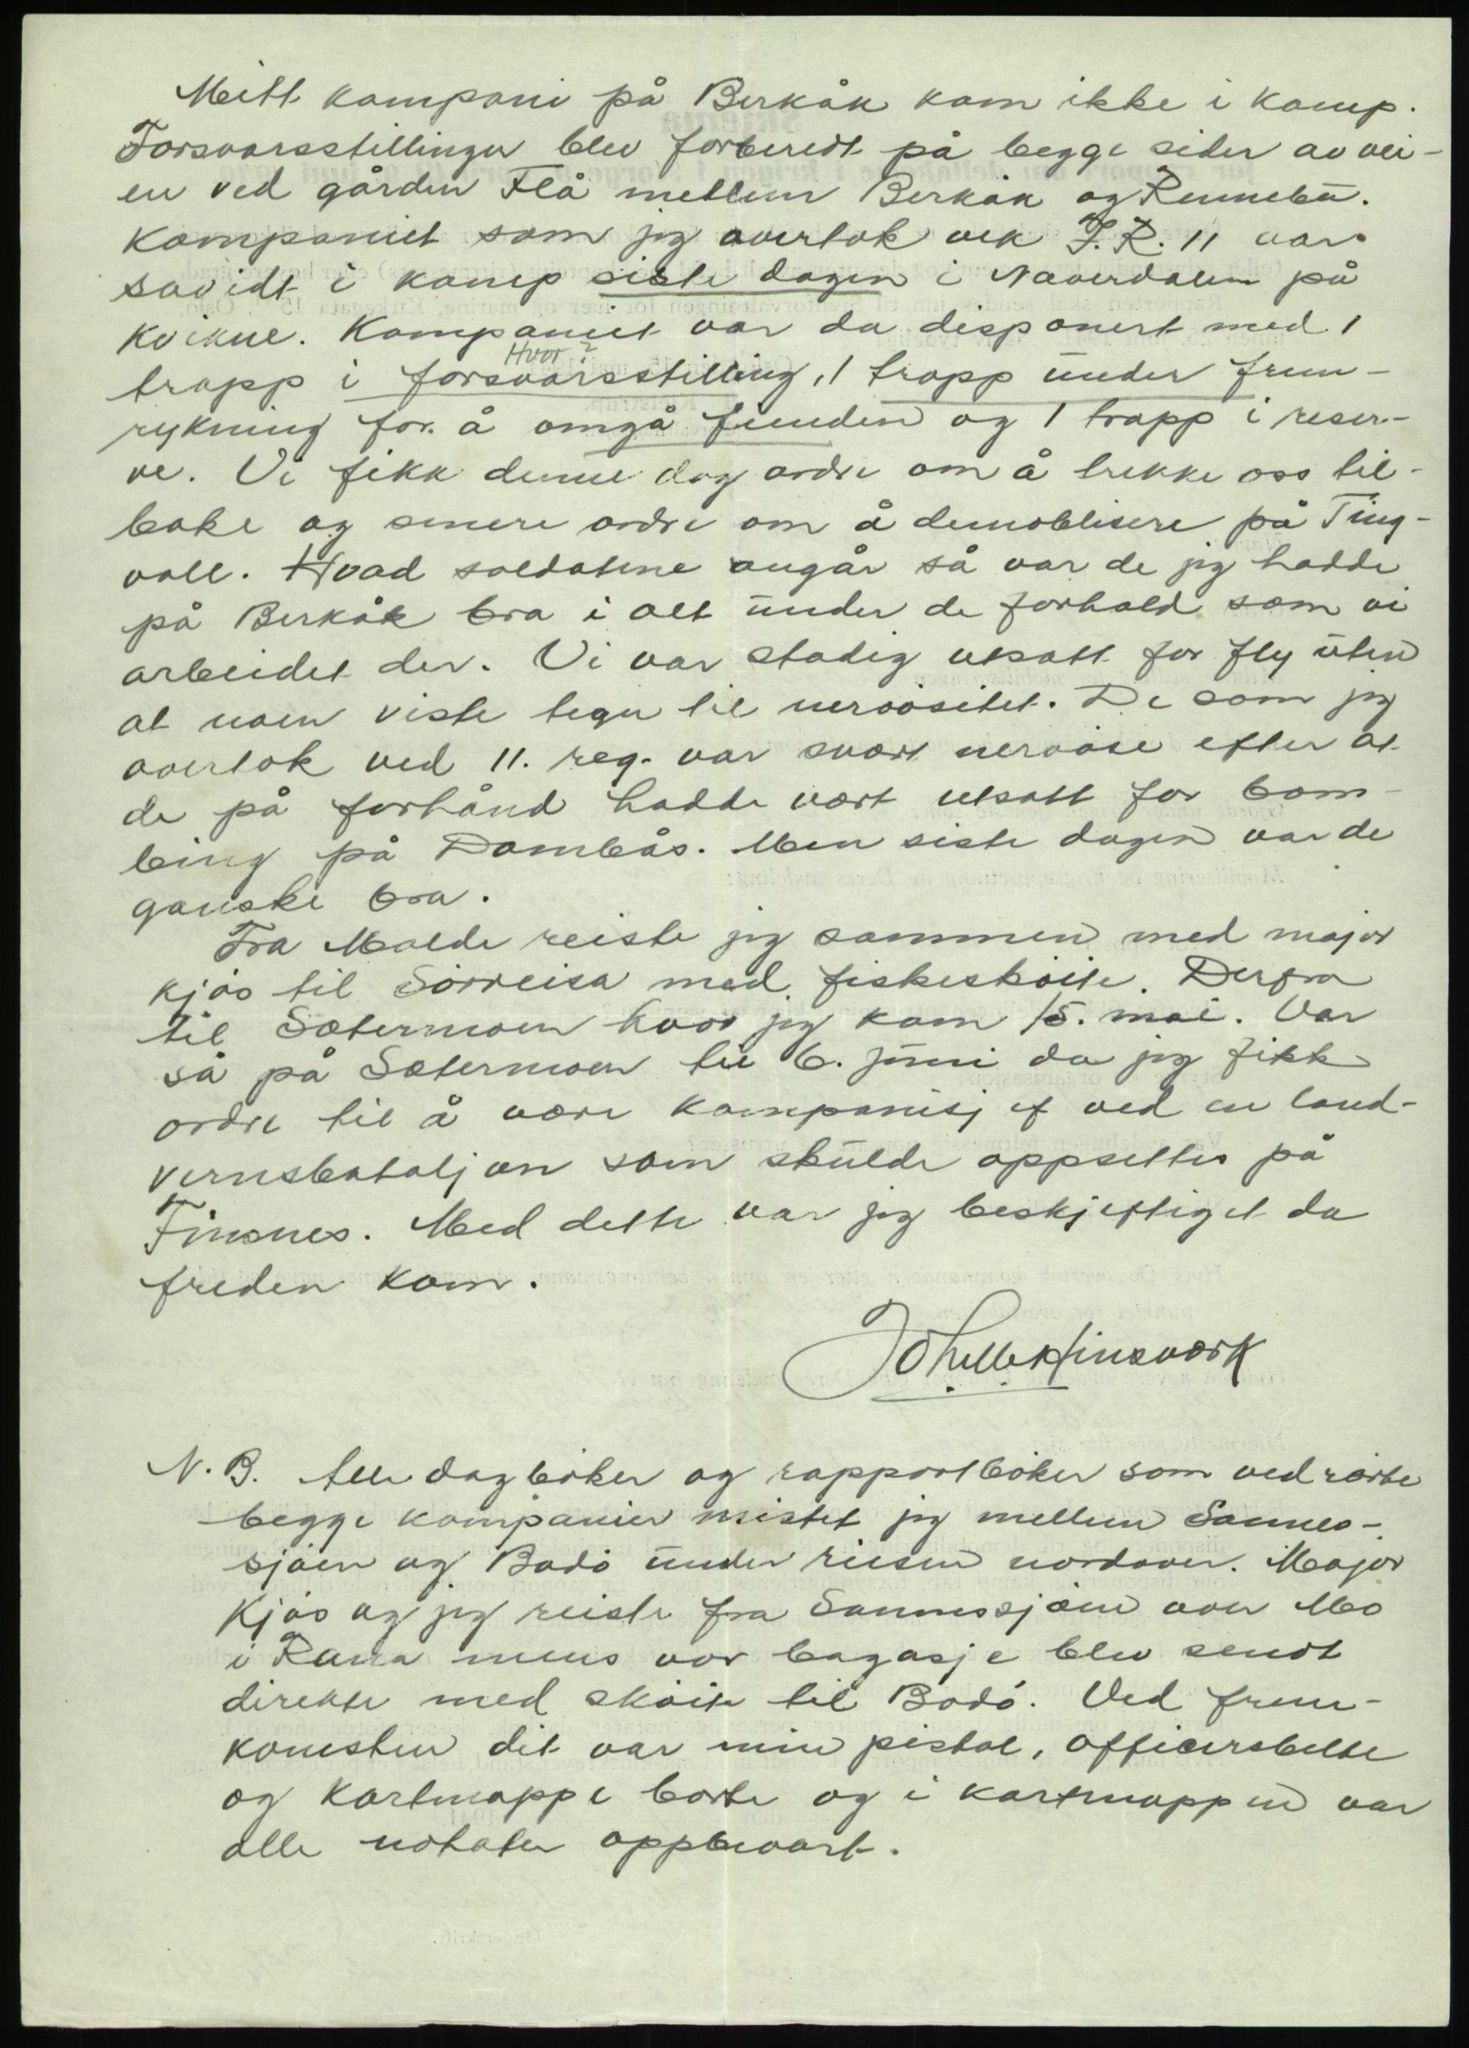 Mitt kompani på Berkåk kom ikke i kamp.
Forsvarsstillinger blev forberedt på begge sider av vei-
en ved gården Flå mellem Berkåk og Rennebu.
Kompaniet som jeg overtok ved I.R. 11 var
såvidt i kamp siste dagen i Naverdalen på
Kvikne. Kompaniet var da disponert med 1
Hvor?
tropp i forsvarsstilling, 1 tropp under frem-
rykning for å omgå fienden og 1 tropp i reser-
ve. Vi fikk denne dag ordre om å trekke oss til-
bake og senere ordre om å demoblisere på Ting-
voll. Hvad soldatene angår så var de jeg hadde
på Berkåk bra i alt under de forhold som vi
arbeidet der. Vi var stadig utsatt for fly uten
at noen viste tegn til nervøsitet. De som jeg
overtok ved 11. reg. var svært nervøse efter at
de på forhånd hadde vært utsatt for bom-
bing på Dombås. Men siste dagen var de
ganske bra.
Fra Molde reiste jeg sammen med major
Kjøs til Sørreisa med fiskeskøite. Derfra
til Setermoen hvor jeg kom 15. mai. Var
så på Setermoen til 6. juni da jeg fikk
ordre til å være kompanisjef ved en land-
vernsbataljon som skulde oppsettes på
Finsnes. Med dette var jeg beskjeftiget da
freden kom.
N.B. Alle dagbøker og rapportbøker som vedrørte
begge kompanier mistet jeg mellem Sannes-
sjøen og Bodø under reisen nordover. Major
Kjøs og jeg reiste fra Sannessjøen over Mo
i Rana mens vor bagasje blev sendt
direkte med skøite til Bodø. Ved frem-
komsten dit var min pistol, officersbelte
og kartmappe borte og i kartmappen var
alle notater oppbevart.